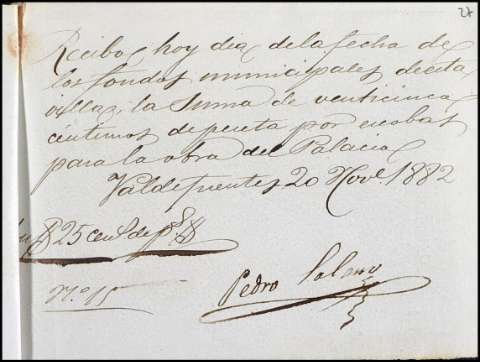 27
Recibo hoy dia de la fecha de
los fondos municipales de esta
villa, la Suma de venticinco
centimos de peseta por escobas
para la obra del Palacio
Valdefuentes 20 Nov.e 1882
25 cent.s de p.ta
N.o 15
Pedro Solano